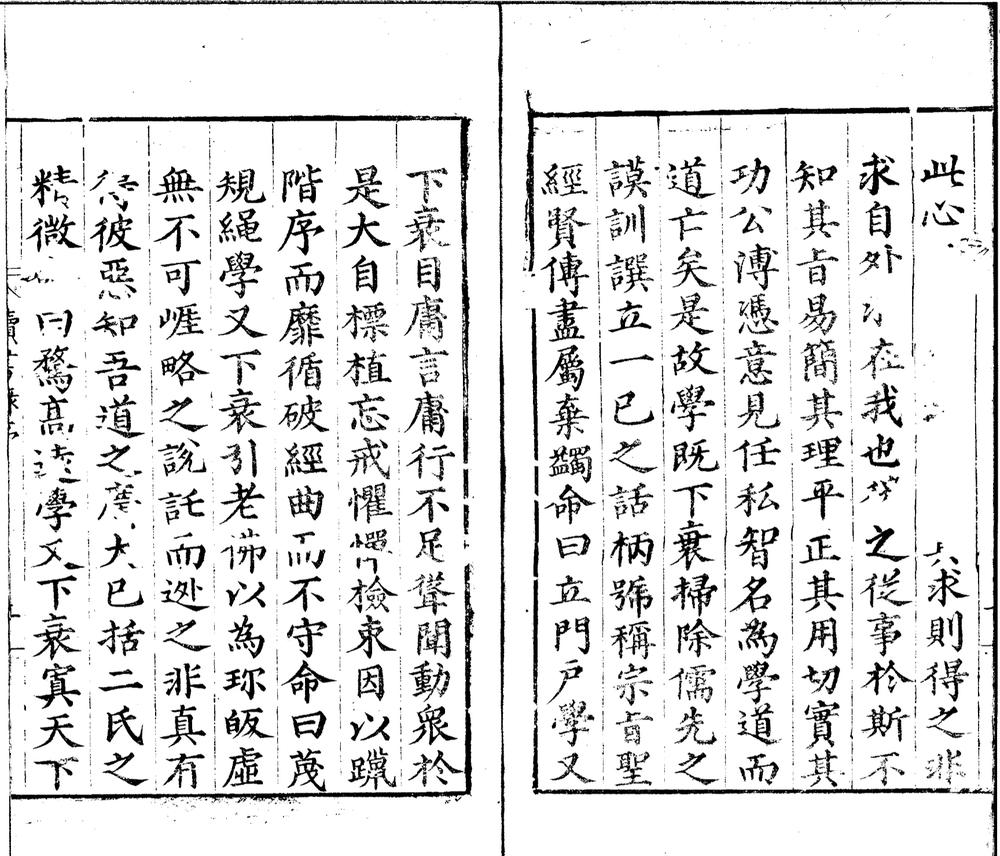 此心求則得之非
求自外在我也之從事於斯不
知其旨易簡其理平正其用切實其
功公溥憑意見任私智名為學道而
道亡矣是故學既下衰掃除儒先之
謨訓譔立一已之話柄號稱宗旨聖
經賢傳盡屬棄蠲命曰立門戶學又
下衰目庸言庸行不足聳聞動衆於
是大自標植忘戒懼憚檢束因以躐
階序而靡循破經曲而不守命曰蔑
規繩學又下衰引老佛以為珎皈虛
無不可崕略之說託而迯之非真有
得彼惡知吾道之廣大已括二氏之
精微曰騖高遠學又下衰寘天下